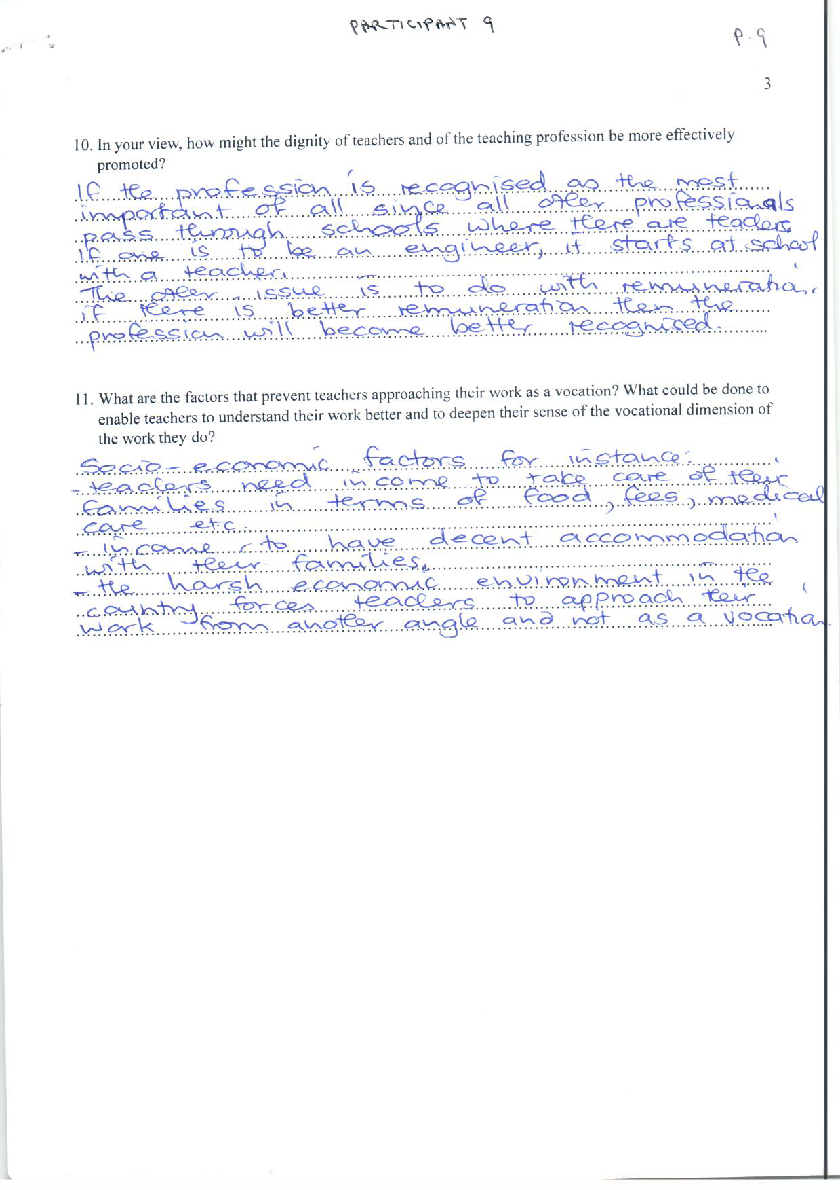 PARTICIPANT 9
P.9
3
10. In your view, how might the dignity of teachers and of the teaching profession be more effectively
promoted?
If the profession is recognised as the most
important of all since all other professionals
pass through schools where there are teachers
If one is to be an engineer, it starts at school
with a teacher.
The other issue is to do with remuneration,
if there is better remuneration then the
profession will become better recognised.
11. What are the factors that prevent teachers approaching their work as a vocation? What could be done to
enable teachers to understand their work better and to deepen their sense of the vocational dimension of
the work they do?
Socio-economic factors for instance:
- teachers need income to take care of their
families in terms of food, fees, medical
care etc.
- income to have decent accommodation
with their families.
- the harsh economic environment in the
country forces teachers to approach their
work from another angle and not as a vocation